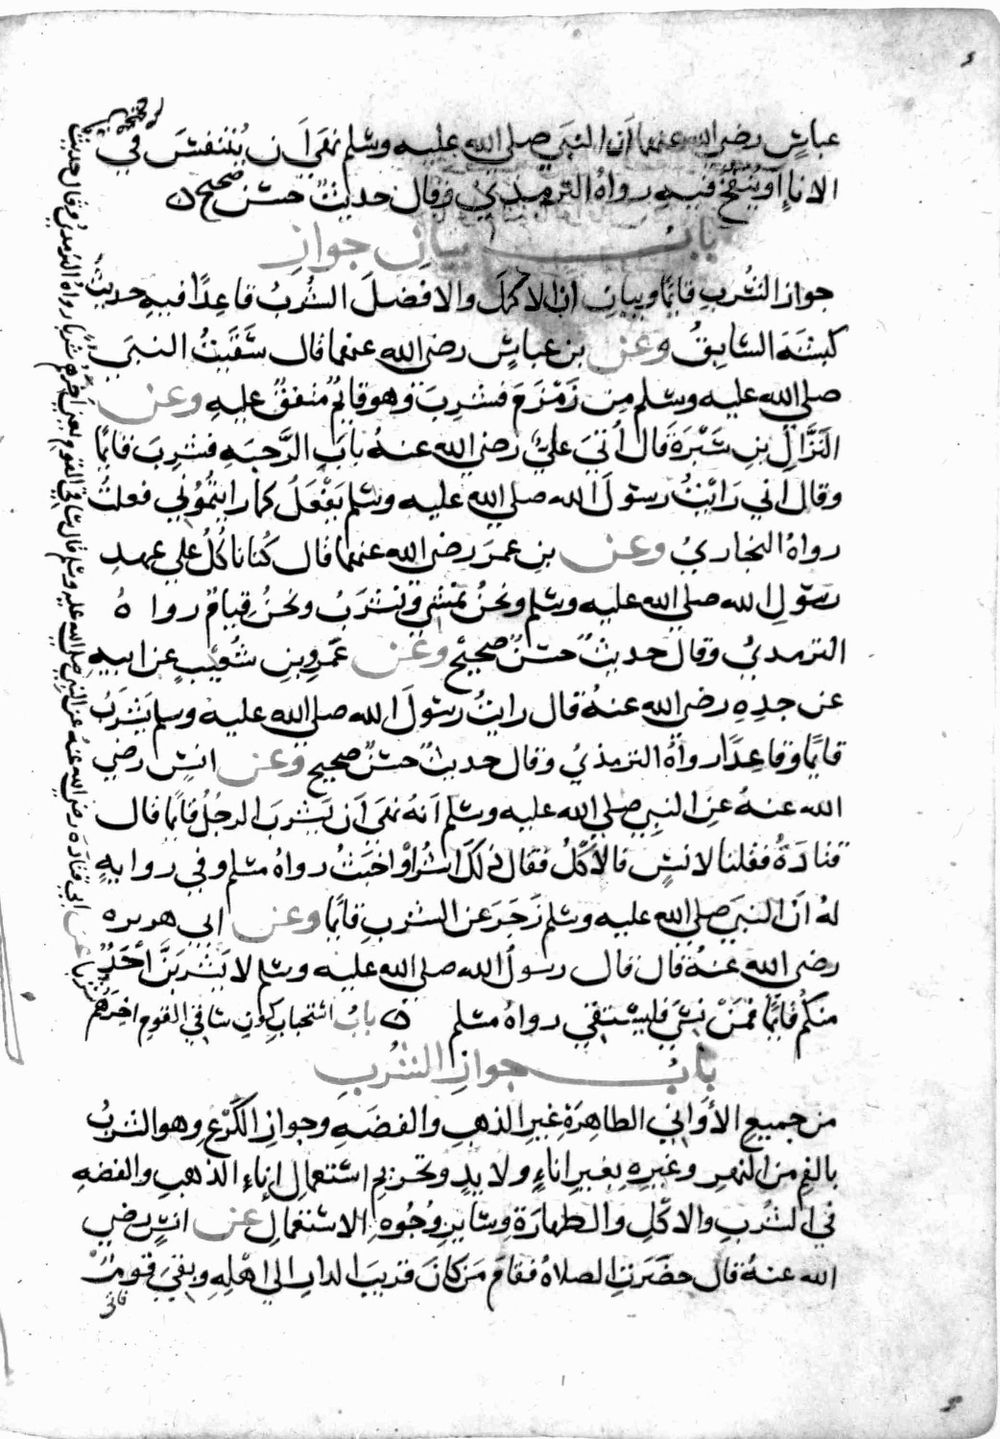 عباسٍ رضي الله عنهما أن النبيَ صلي الله عليه وسلم نهَي أَن يُتنفسَ في
الاناءِ أو يُنْفَخَ فيهِ رواهُ الترمِذيُ وقال حديثٌ حسَنٌ صحيح ٥
بابُ بيانِ جوازِ
جواز الشُربِ قائِمًا وبيانِ انَّ الاكملَ والافضلَ الشُربُ قاعِدًا فيهِ حديث
كبشَةَ السَّابِقُ وعن بن عباسٍ رضي الله عنهما قال سَقَيتُ النبيَ
صلي الله عليه وسلم مِن زَمْزَمَ فشرِبَ وهو قائمٌ متفقٌ عليهِ وعن
النَزَّالِ بنِ سَبْرَةَ قال أُتيَ عليٌّ رضي الله عنهُ بابَ الرَّحبَهِ فشرِبَ قايمًا
وقال اني رَايْتُ رسوُلَ الله صلي الله عليه وسلم يَفْعَلُ كما رايتُمُوني فعلتُ
رواهُ البخاريُ وعن بنِ عمرَ رضي الله عنهما قال كُنا ناكُلُ علي عهدِ
رسُولِ الله صلي الله عليه وسلم ونحنُ نمْشي ونشرَبُ ونحنُ قيامٌ رواهُ
الترمديُ وقال حديثٌ حسَنٌ صحيحٌ وعن عَمْروِ بنِ شُعَيْبٍ عن ابيهِ
عن جدِهِ رضي الله عنهُ قال رايتُ رسوُلَ الله صلي الله عليه وسلم يَشرَبُ
قايمًا وقاعِدًا رواهُ الترمذيُ وقال حديثٌ حسَنٌ صحيح وعن انسٍ رضي
الله عنهُ عنِ النبيِ صلي الله عليه وسلم أنهُ نهَي أن يَشربَ الرجُلُ قايمًا قال
قتادَةُ فقلنا لانسٍ فالأكْلُ فقال ذلكَ أشرُ أوْ أخبَثُ رواهُ مسلم وفي روايةٍ
لهُ أنَ النبيَ صلي الله عليه وسلم زَجَرَ عن الشربِ قايمًا وعن ابي هريره
رضي الله عنهُ قال قال رسولُ الله صلي الله عليه وسلم لا يَشْرَبَنَّ أحَدٌ
منكم قائمًا فمَنْ نسيَ فليَسْتقي رواهُ مسلم ٥ بابُ استحبابِ كونِ ساقي القومِ اخِرَهُم
شربا عن ابي قتادَه رضي الله عنهُ عن النبي صلي الله عليه وسلم قال ساقي القومِ اخِرُهم يعني شربا رواهُ الترمديُ وقال حديث حسن صحيح
بابُ جوازِ الشُربِ
من جميعِ الأوَاني الطاهِرَةِ غيرِ الذهبِ والفضَهِ وجوازِ الكَرْعِ وهو الشربُ
بالفمِ من النهرِ وغيرِهِ بغيرِ اناءٍ ولا يدٍ وتحريمِ استعمالِ إناءِ الذهبِ والفضهِ
في الشربِ والاكْلِ والطهارَةِ وسايرِ وجُوهِ الاستعمالِ عن انسٍ رضي
الله عنهُ قال حضَرَتِ الصلاهُ فقامَ مَن كانَ قريبَ الدارِ الي اهلِهِ وبقيَ قومٌ